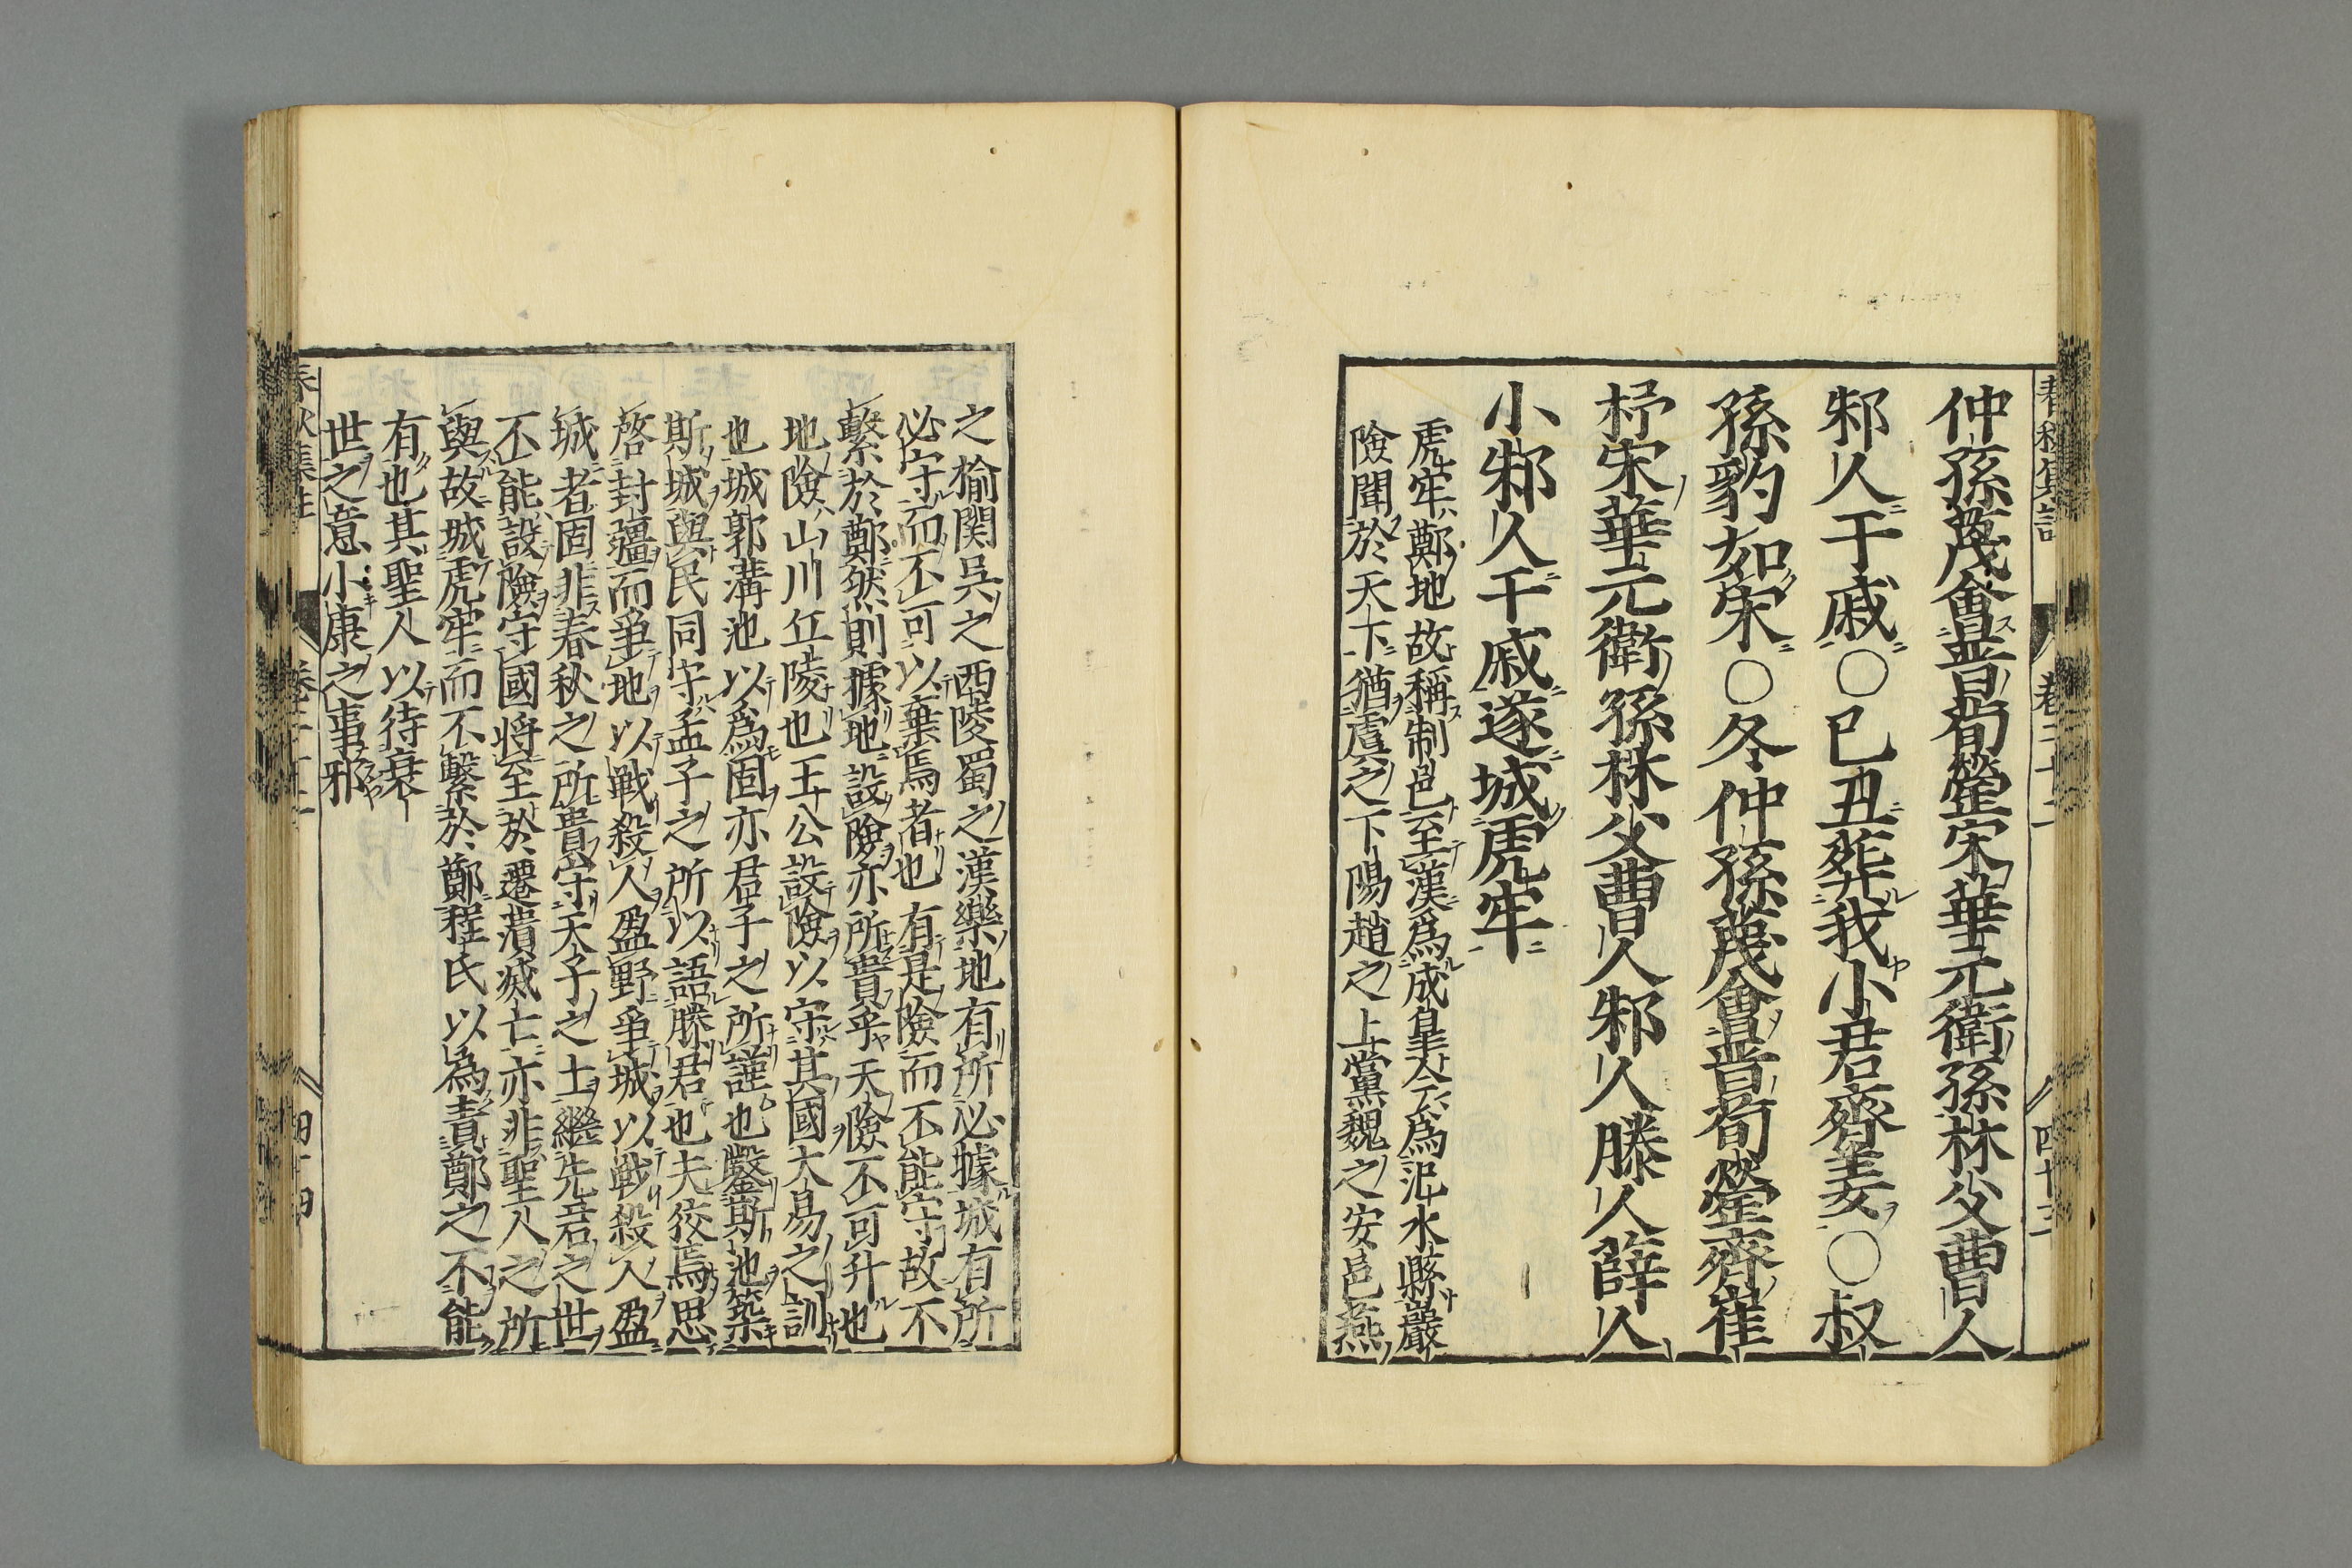 仲孫蔑會晋荀罃宋華元衛孫林父曹人
邾人于戚〇己丑葬我小君齊姜〇叔
孫豹如宋〇冬仲孫蔑會晋荀罃齊崔
杼宋華元衛孫林父曹人邾人滕人薛人
小邾人于戚遂城虎牢
虎牢鄭地故稱制邑至漢為成皐今為汜水縣巖
險聞於天下猶虞之下陽趙之上黨魏之安邑燕
之榆関吳之西陵蜀之漢樂地有所必據城有所
必守而不可以棄焉者也有是險而不能守故不
繫於鄭然則據地設險亦所貴乎天險不可升也
地險山川丘陵也王公設險以守其國大易之訓
也城郭溝池以爲固亦君子之所謹也鑿斯池築
斯城與民同守孟子之所以語滕君也夫狡焉思
啓封疆而爭地以戰殺人盈野爭城以戰殺人盈
城者固非春秋之所貴守天子之土繼先君之世
不能設險守國將至於遷潰滅亡亦非聖人之所
與故城虎牢而不繫於鄭程氏以為責鄭之不能
有也其聖人以待衰
世之意小康之事邪